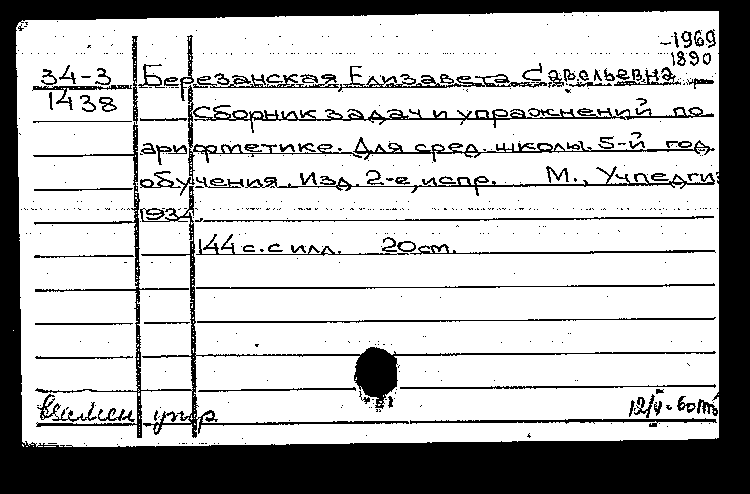 -1969
1890
34-3 Березанская, Елизавета Савельевна
1438
Сборник задач и упражнений по
арифметике. Для сред. школы. 5-й год
обучения. Изд. 2-е, испр. М., Учпедгиз
1934.
144 с. с илл. 20 cm.
упр.